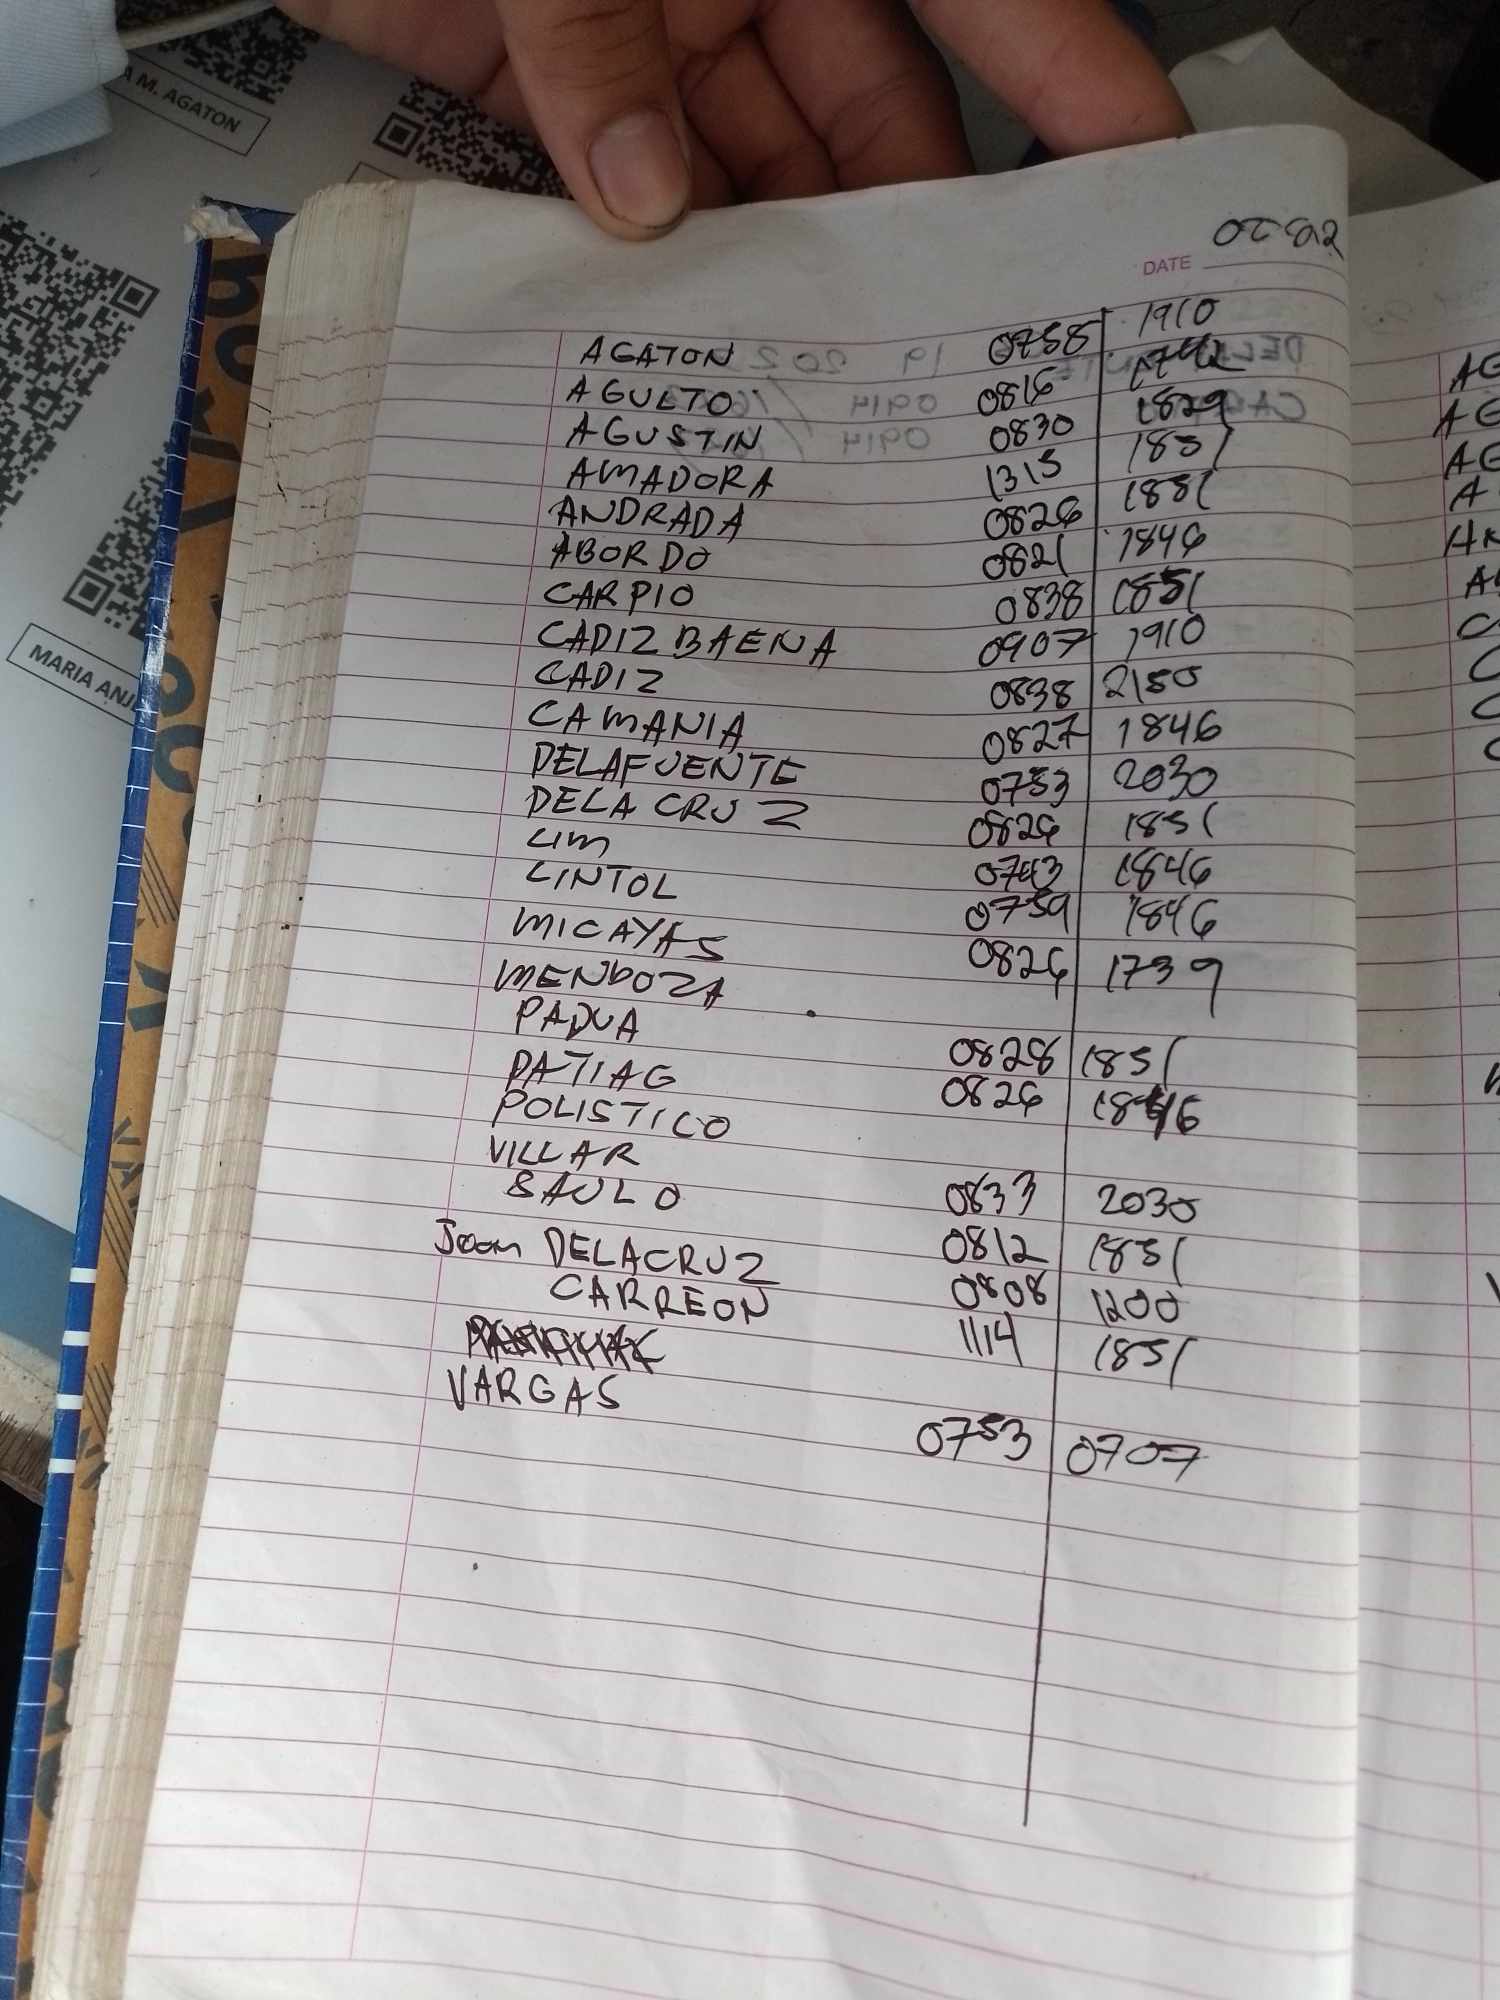 A M. AGATON
MARIA ANJ
DATE
AGATON 0758 1910
AGULTO 0816 1742
AGUSTIN 0830 1829
AMADORA 1315 1851
ANDRADA 0826 1851
ABORDO 0821 1846
CARPIO 0838 1851
CADIZ BAENA 0907 1910
CADIZ 0838 2150
CAMANIA 0827 1846
DELAFUENTE 0753 2030
DELA CRUZ 0826 1851
LIM 0743 1846
LINTOL 0759 1846
MICAYAS 0826 1739
MENDOZA
PADUA 0828 1851
PATIAG 0826 1846
POLISTICO
VILLAR 0833 2030
SAULO 0812 1851
Joan DELACRUZ 0808 1200
CARREON 1114 1851
VARGAS 0753 0707